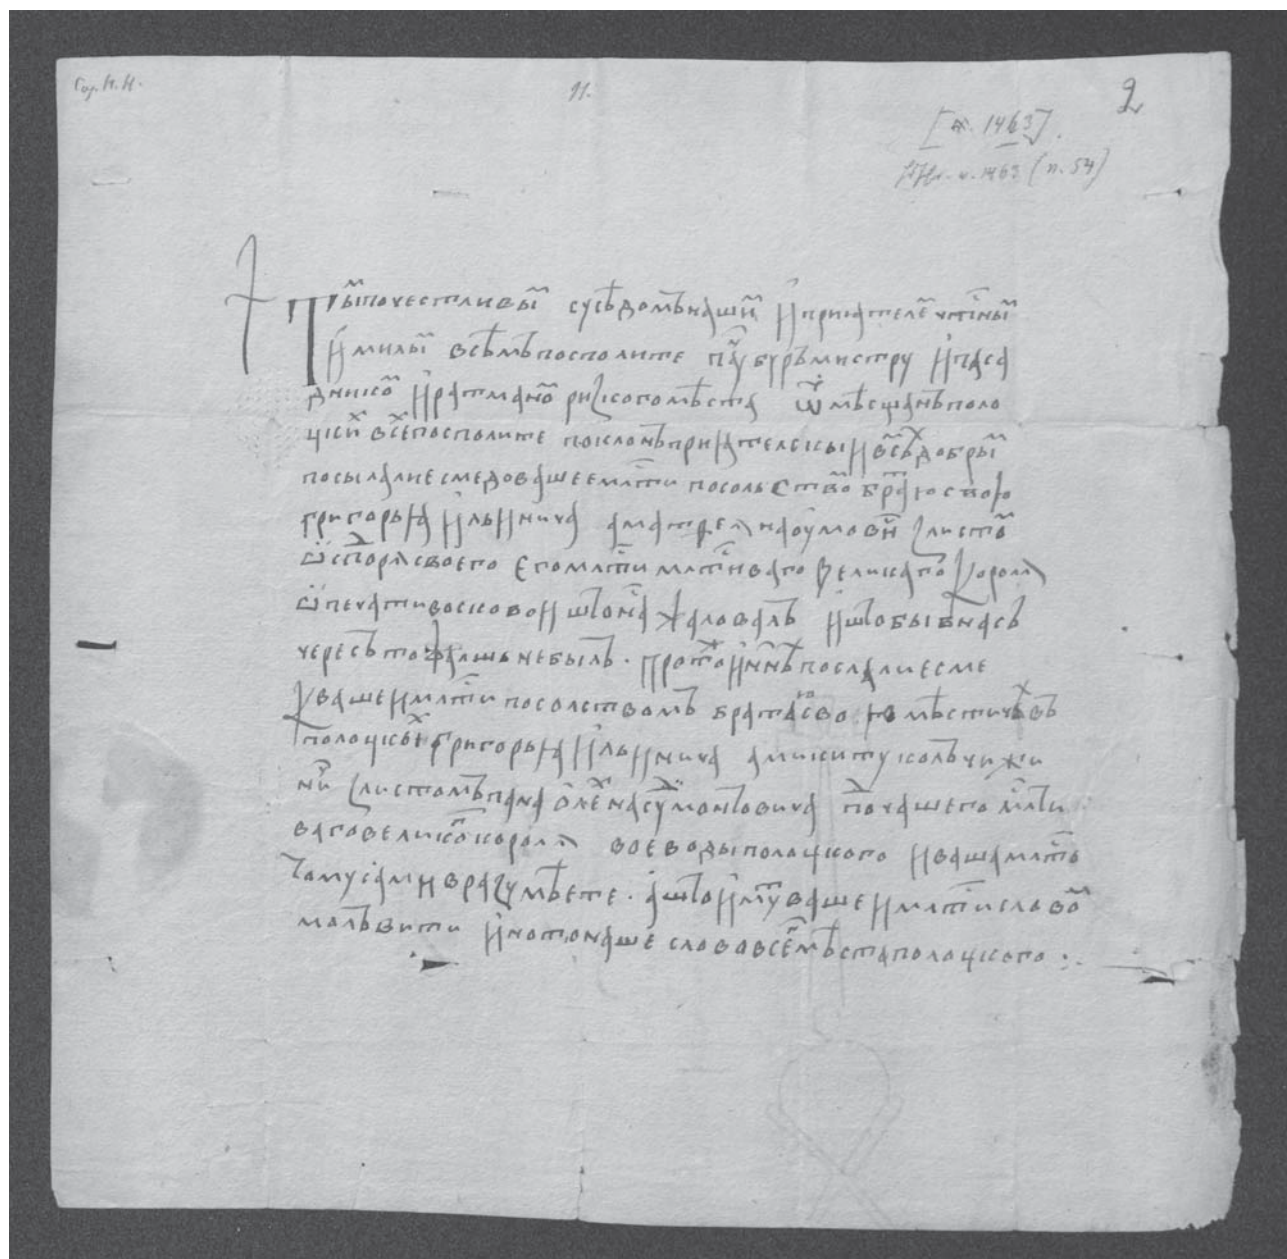 Сор. Н. Н.
11.
2
[п. 1463].
(п. 54)
Прⷨыпочестливыⷨ сусѣдомънашиⷨ Иприꙗтелеⷨ учтⷭ҇ныⷨ
Имилыⷨ всѣмъпосполите паⷩ҇убуръмистру Ипаса
дникоⷨ Иратманоⷨ ризкогомѣста ѿ мѣсчанъполо
цкиⷯ всеⷯпосполите поклонъприꙗтелскы Ивⷭ҇ѣⷯдобрыⷨ
посылалиесмедовашеемлⷭ҇ти посольствоⷨ братⷮ҇юсвою
григорьꙗ Ильинича аматфеꙗнаоумовиⷩ҇ злистоⷨ
ѿсподорⷭ҇ꙗсвоего Егомлⷭ҇тимлⷭ҇тиваго великагоⷢ короⷧꙗ
ѿпечативосковои штониⷭ҇а жаловалъ Иштобывнасъ
чересътофалшьнебылъ · протоⷤ Инⷩ҇ѣⷤпослалиесме
Квашеимлⷭ҇ти посолствомъ братасⷡ҇ою мѣстичоⷡвъ
полоцкиⷯ григорьꙗ Ильинича амикитуколъчижи
ниⷩ҇ злистомъпана Олеⷯнасуⷣимонтовича поⷣчашего млⷭ҇ти
ваговеликогⷪ҇королꙗ воеводыполоцкого Ивашамлⷭ҇ть
томусамиврⷶзумѣете · аштоИмⷨуⷮвашеимлⷭ҇тисловоⷨ
молъвити Инотонаше словавсегⷪ҇мѣстаполоцкого ·